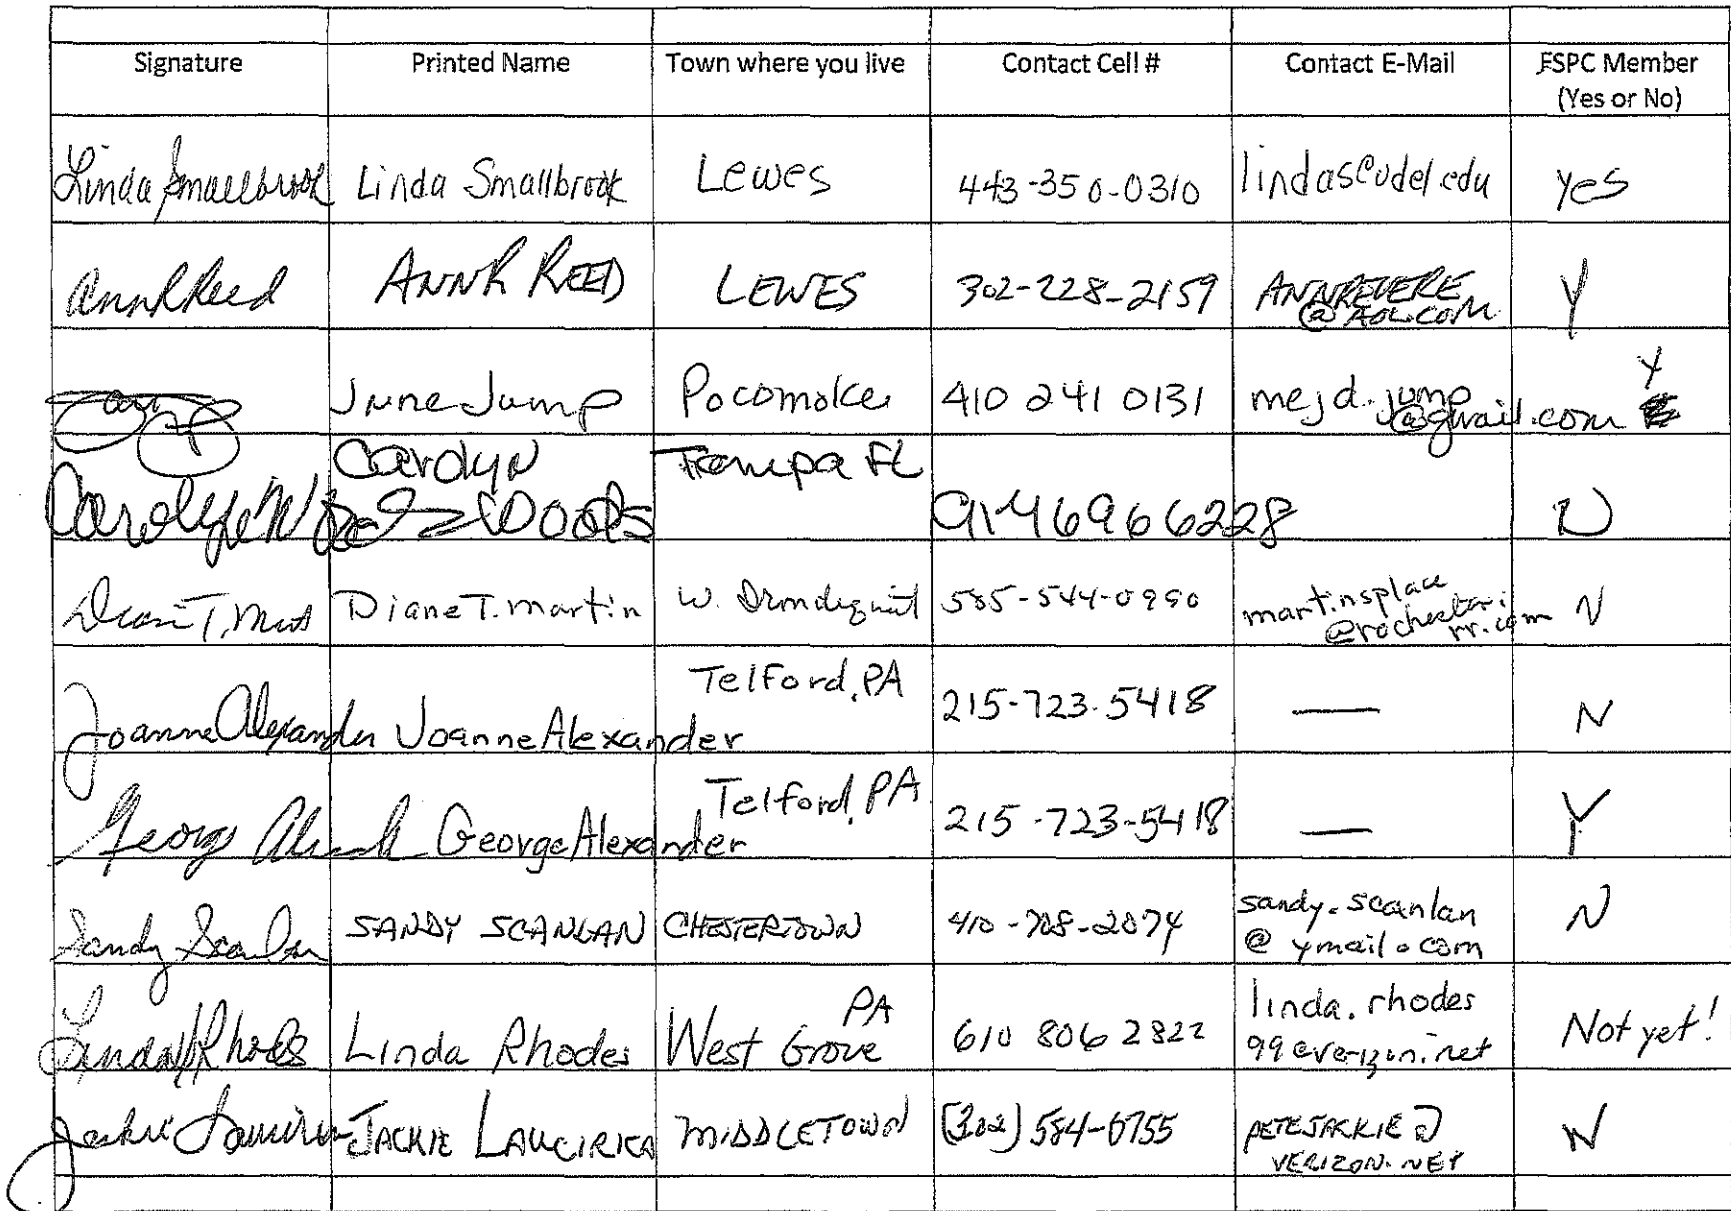 Signature Printed Name Town where you live Contact Cell # Contact E-Mail FSPC Member
(Yes or No)
Linda Smallbrook Linda Smallbrook Lewes 443-350-0310 lindas@udel.edu yes
Ann R Reed ANN R REED LEWES 302-228-2159 ANNREVERE
@AOL.COM Y
June Jump Pocomoke 410 241 0131 mejd.jump
@gmail.com Y
Carolyn Woods Carolyn
Woods Tampa FL 9146966228 N
Diane T. Martin W. 585-544-0990 martinsplace
@rochester.
rr.com N
Joanne Alexander Joanne Alexander Telford, PA 215-723-5418 — N
George Alexander Telford, PA 215-723-5418 — Y
Sandy Scanlan SANDY SCANLAN CHESTERTOWN 410-708-2074 sandy.scanlan
@ymail.com N
Linda Rhodes Linda Rhodes West Grove PA 610 806 2822 linda.rhodes
99@verizon.net Not yet!
Jackie JACKIE LAUCIRICA MIDDLETOWN (302) 584-6755 PETEJACKIE@
VERIZON.NET N